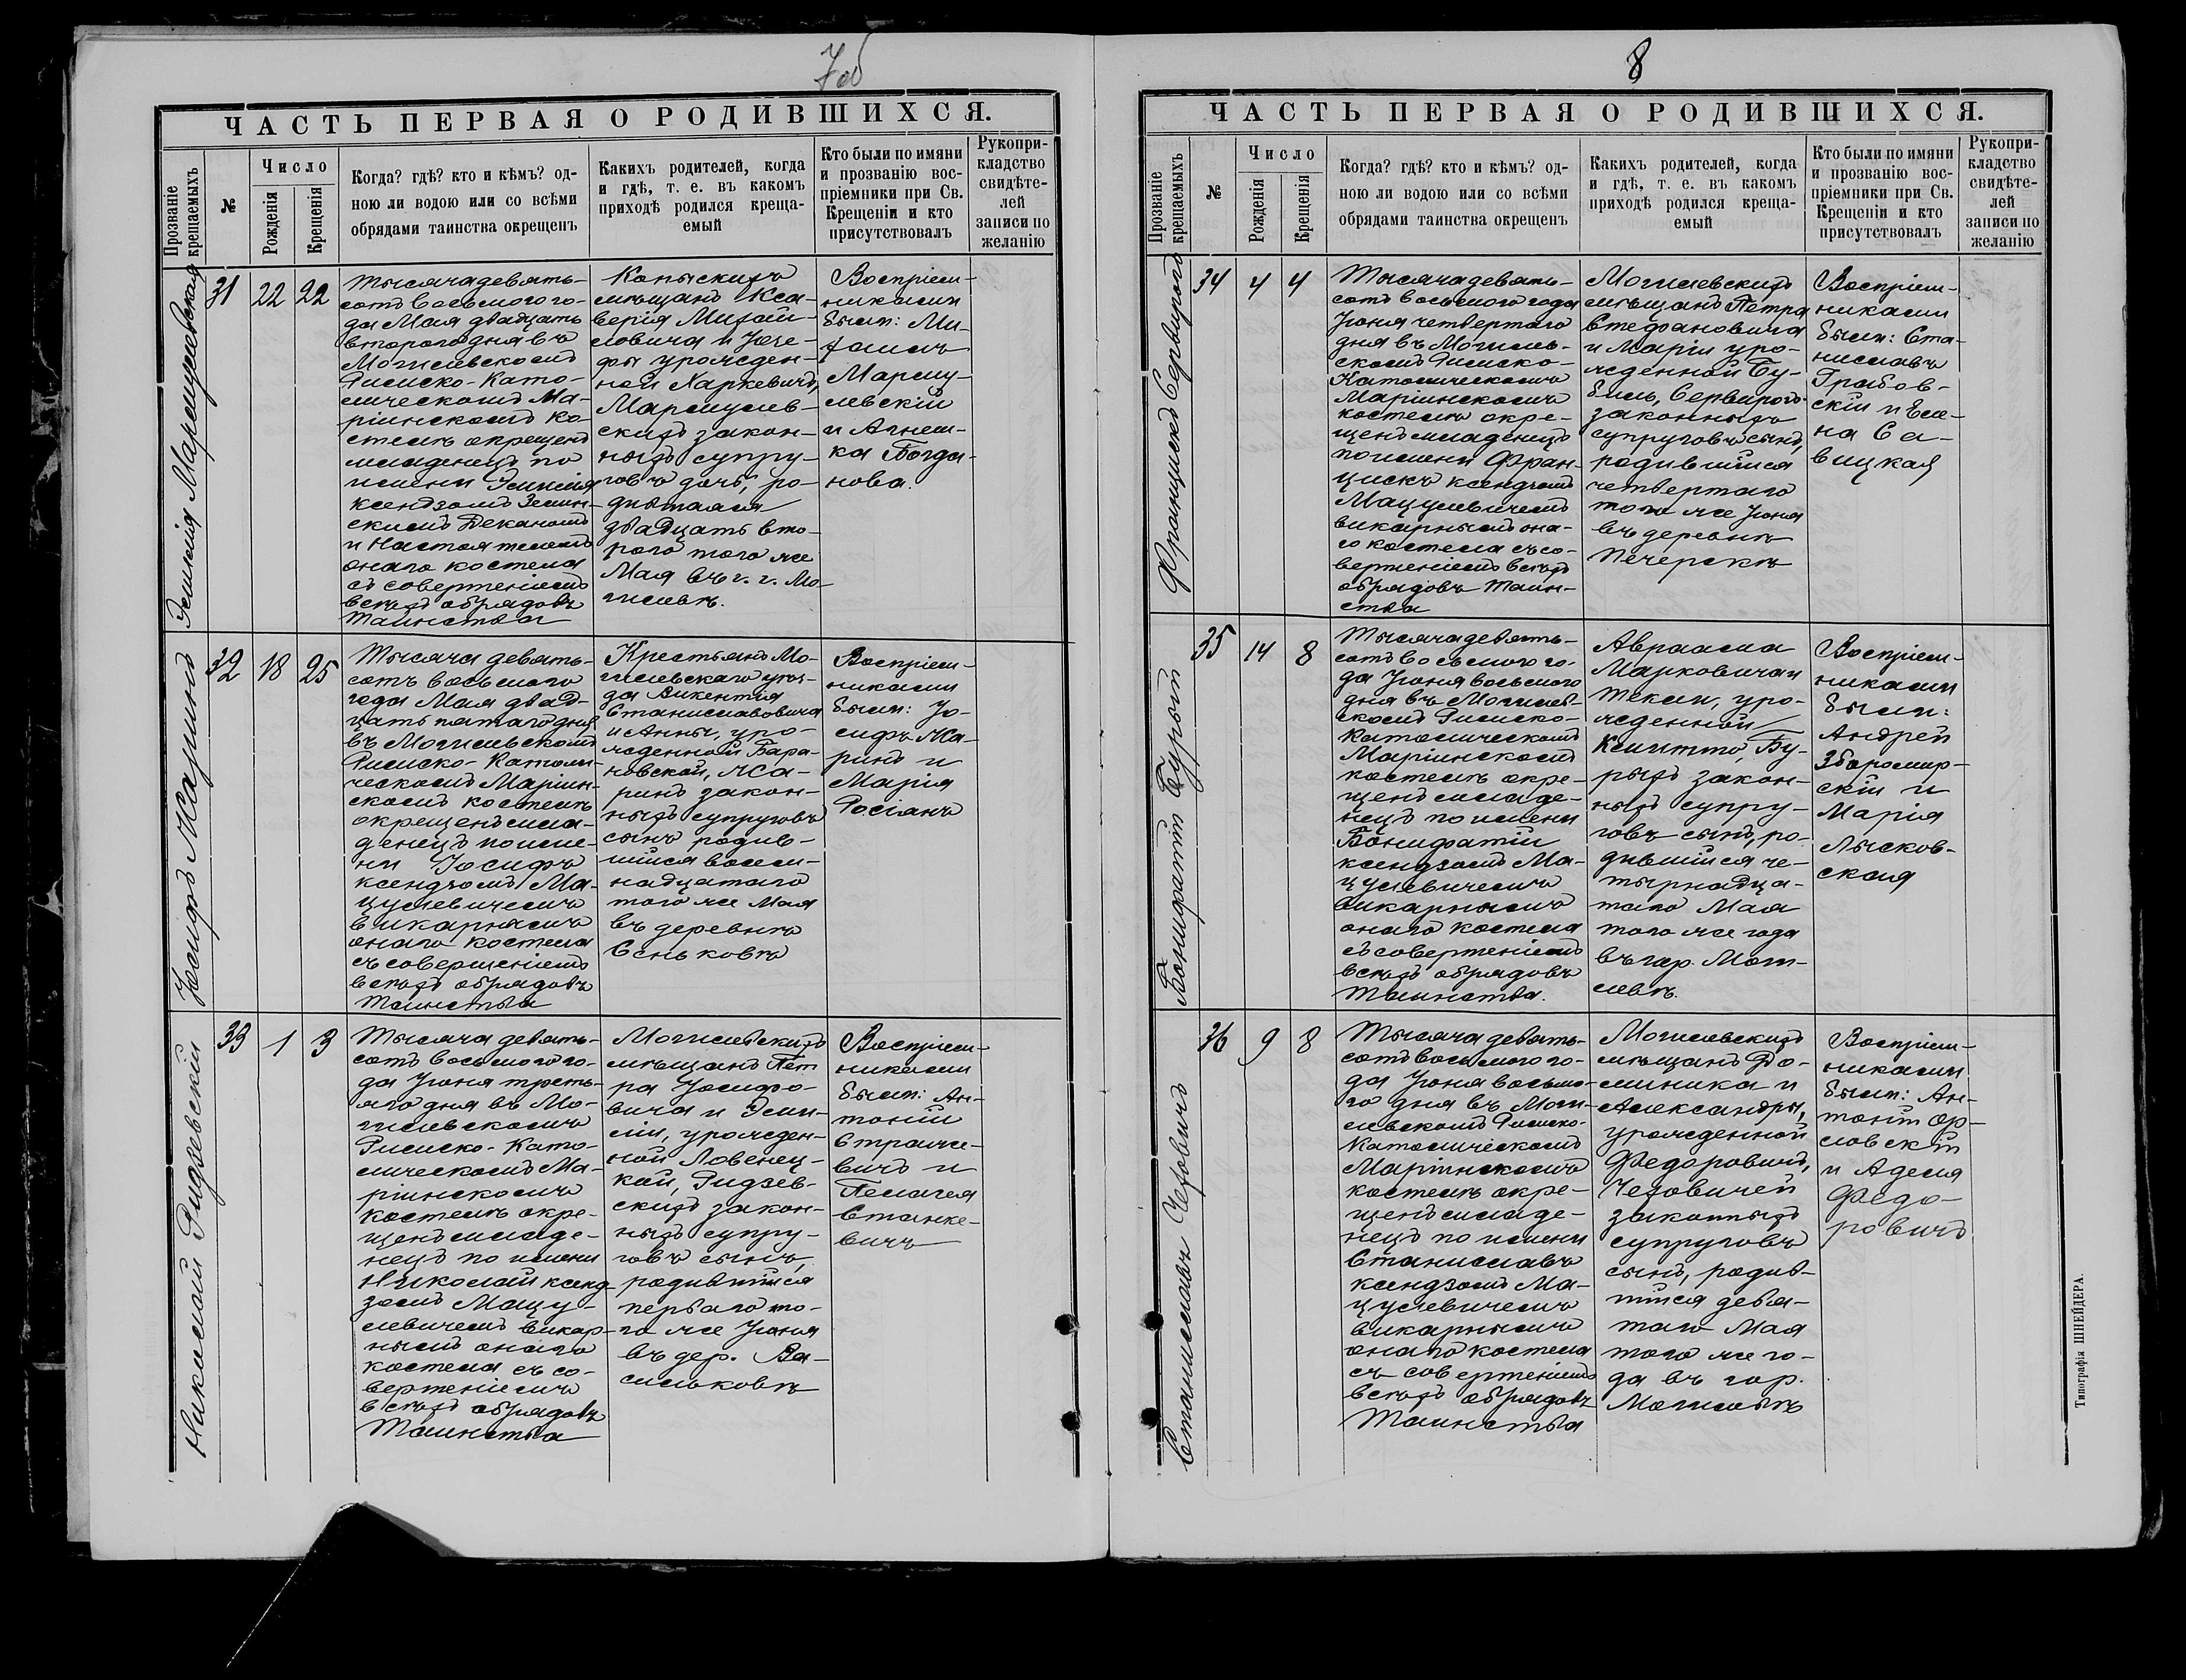 7об
ЧАСТЬ ПЕРВАЯ О РОДИВШИХСЯ.
Прозваніе
крещаемыхъ
№
Число
Рожденія
Крещенія
Когда? гдѣ? кто и кѣмъ? од-
ною ли водою или со всѣми
обрядами таинства окрещенъ
Какихъ родителей, когда
и гдѣ, т. е. въ какомъ
приходѣ родился креща-
емый
Кто были по имяни
и прозванію вос-
пріемники при Св.
Крещеніи и кто
присутствовалъ
Рукопри-
кладство
свидѣте-
лей
записи по
желанію
Эмилія Мармулевская
31
22
22
Тысячадевять-
сотъ восьмого го-
да Мая двадцать
второго дня въ
Могилевскомъ
Римско-Като-
лическомъ Ма-
ріинскомъ ко-
стелѣ окрещенъ
младенецъ по
имени Эмилія
ксендзомъ
Деканомъ
и Настоятелемъ
онаго костела
съ совершеніемъ
всѣхъ обрядовъ
Таинства
Копыскихъ
мѣщанъ Кса-
верія Михай-
ловича и Юзе-
фы урожден-
ной Харкевичъ,
Мармулев-
скихъ закон-
ныхъ супру-
говъ дочь, ро-
дившаяся
двадцать вто-
рого того же
Мая въ г. г. Мо-
гилевѣ.
Воспріем-
никами
были: Ми-
хаилъ
Марму-
левскій
и Агнеш-
ка Богда-
нова.
Іосифъ Жаринъ
32
18
25
Тысяча девять-
сотъ восьмого
года Мая двад-
цать пятаго дня
въ Могилевскомъ
Римско-Католи-
ческомъ Маріин-
скомъ костелѣ
окрещенъ мла-
денецъ по име-
ни Іосифъ
ксендзомъ Ма-
цулевичемъ
викарнымъ
онаго костела
съ совершеніемъ
всѣхъ обрядовъ
Таинства
Крестьянъ Мо-
гилевскаго уѣз-
да Викентія
Станиславовича
и Анны, уро-
жденной Бара-
новской, Жа-
ринъ закон-
ныхъ супруговъ
сынъ родив-
шійся восем-
надцатаго
того же Мая
въ деревнѣ
Сеньковѣ
Воспріем-
никами
были: Іо-
сифъ Жа-
ринъ и
Марія
Росіанъ
Николай Ридзевскій
33
1
3
Тысяча девять-
сотъ восьмого го-
да Іюня треть-
яго дня въ Мо-
гилевскомъ
Римско-Като-
лическомъ Ма-
ріинскомъ
костелѣ окре-
щенъ младе-
нецъ по имени
Николай ксенд-
зомъ Мацу-
левичемъ викар-
нымъ онаго
костела съ со-
вершеніемъ
всѣхъ обрядовъ
Таинства
Могилевскихъ
мѣщанъ Пет
ра Іосифо-
вича и Эми-
ліи, урожден-
ной Ловенец-
кой, Ридзев-
скихъ закон-
ныхъ супру-
говъ сынъ,
родившійся
перваго то-
го же Іюня
въ дер. Ва-
сильковѣ
Воспріем-
никами
были: Ан-
тоній
Стралже-
вичъ и
Пелагея
Станке-
вичъ
8
ЧАСТЬ ПЕРВАЯ О РОДИВШИХСЯ.
Прозваніе
крещаемыхъ
№
Число
Рожденія
Крещенія
Когда? гдѣ? кто и кѣмъ? од-
ною ли водою или со всѣми
обрядами таинства окрещенъ
Какихъ родителей, когда
и гдѣ, т. е. въ какомъ
приходѣ родился креща-
емый
Кто были по имяни
и прозванію вос-
пріемники при Св.
Крещеніи и кто
присутствовалъ
Рукопри-
кладство
свидѣте-
лей
записи по
желанію
Францискъ Сервирого
34
4
4
Тысячадевять-
сотъ восьмого года
Іюня четвертаго
дня въ Могилев-
скомъ Римско-
Католическомъ
Маріинскомъ
костелѣ окре-
щенъ младенецъ
по имени Фран-
цискъ ксендзомъ
Мацулевичемъ
викарнымъ она-
го костела съ со-
вершеніемъ всѣхъ
обрядовъ Таин-
ства
Могилевскихъ
мѣщанъ Петра
Стефановича
и Маріи уро-
жденной Бу-
биль, Сервирого
законныхъ
супруговъ сынъ,
родившійся
четвертаго
того же Іюня
въ деревнѣ
Печерскѣ
Воспріем-
никами
были: Ста-
ниславъ
Грабов-
скій и Еле-
на Са-
вицкая
Бонифатій Бурый
35
14
8
Тысячадевять-
сотъ восьмого го-
да Іюня восьмого
дня въ Могилев-
скомъ Римско-
Католическомъ
Маріинскомъ
костелѣ окре-
щенъ младе-
нецъ по имени
Бонифатій
ксендзомъ Ма-
цулевичемъ
викарнымъ
онаго костела
съ совершеніемъ
всѣхъ обрядовъ
Таинства.
Авраама
Марковича и
Теклии, уро-
жденной
Климто, Бу-
рыхъ закон-
ныхъ супру-
говъ сынъ, ро-
дившійся че-
тырнадца-
таго Мая
того же года
въ гор. Моги-
левѣ.
Воспріем-
никами
были:
Андрей
Збромир-
скій и
Марія
Лысков-
ская
Станиславъ Чеховичъ
36
9
8
Тысяча девять-
сотъ восьмого го-
да Іюня восьмо-
го дня въ Моги-
левскомъ Римско-
Католическомъ
Маріинскомъ
костелѣ окре-
щенъ младе-
нецъ по имени
Станиславъ
ксендзомъ Ма-
цулевичемъ
викарнымъ
онаго костела
съ совершеніемъ
всѣхъ обрядовъ
Таинства
Могилевскихъ
мѣщанъ До-
миника и
Александры,
урожденной
Федоровичъ,
Чеховичей
законныхъ
супруговъ
сынъ, родив-
шійся девя-
таго Мая
того же го-
да въ гор.
Могилевѣ
Воспріем-
никами
были: Ан-
тоній Ор-
ловскій
и Аделя
Федо-
ровичъ
Типографія ШНЕЙДЕРА.